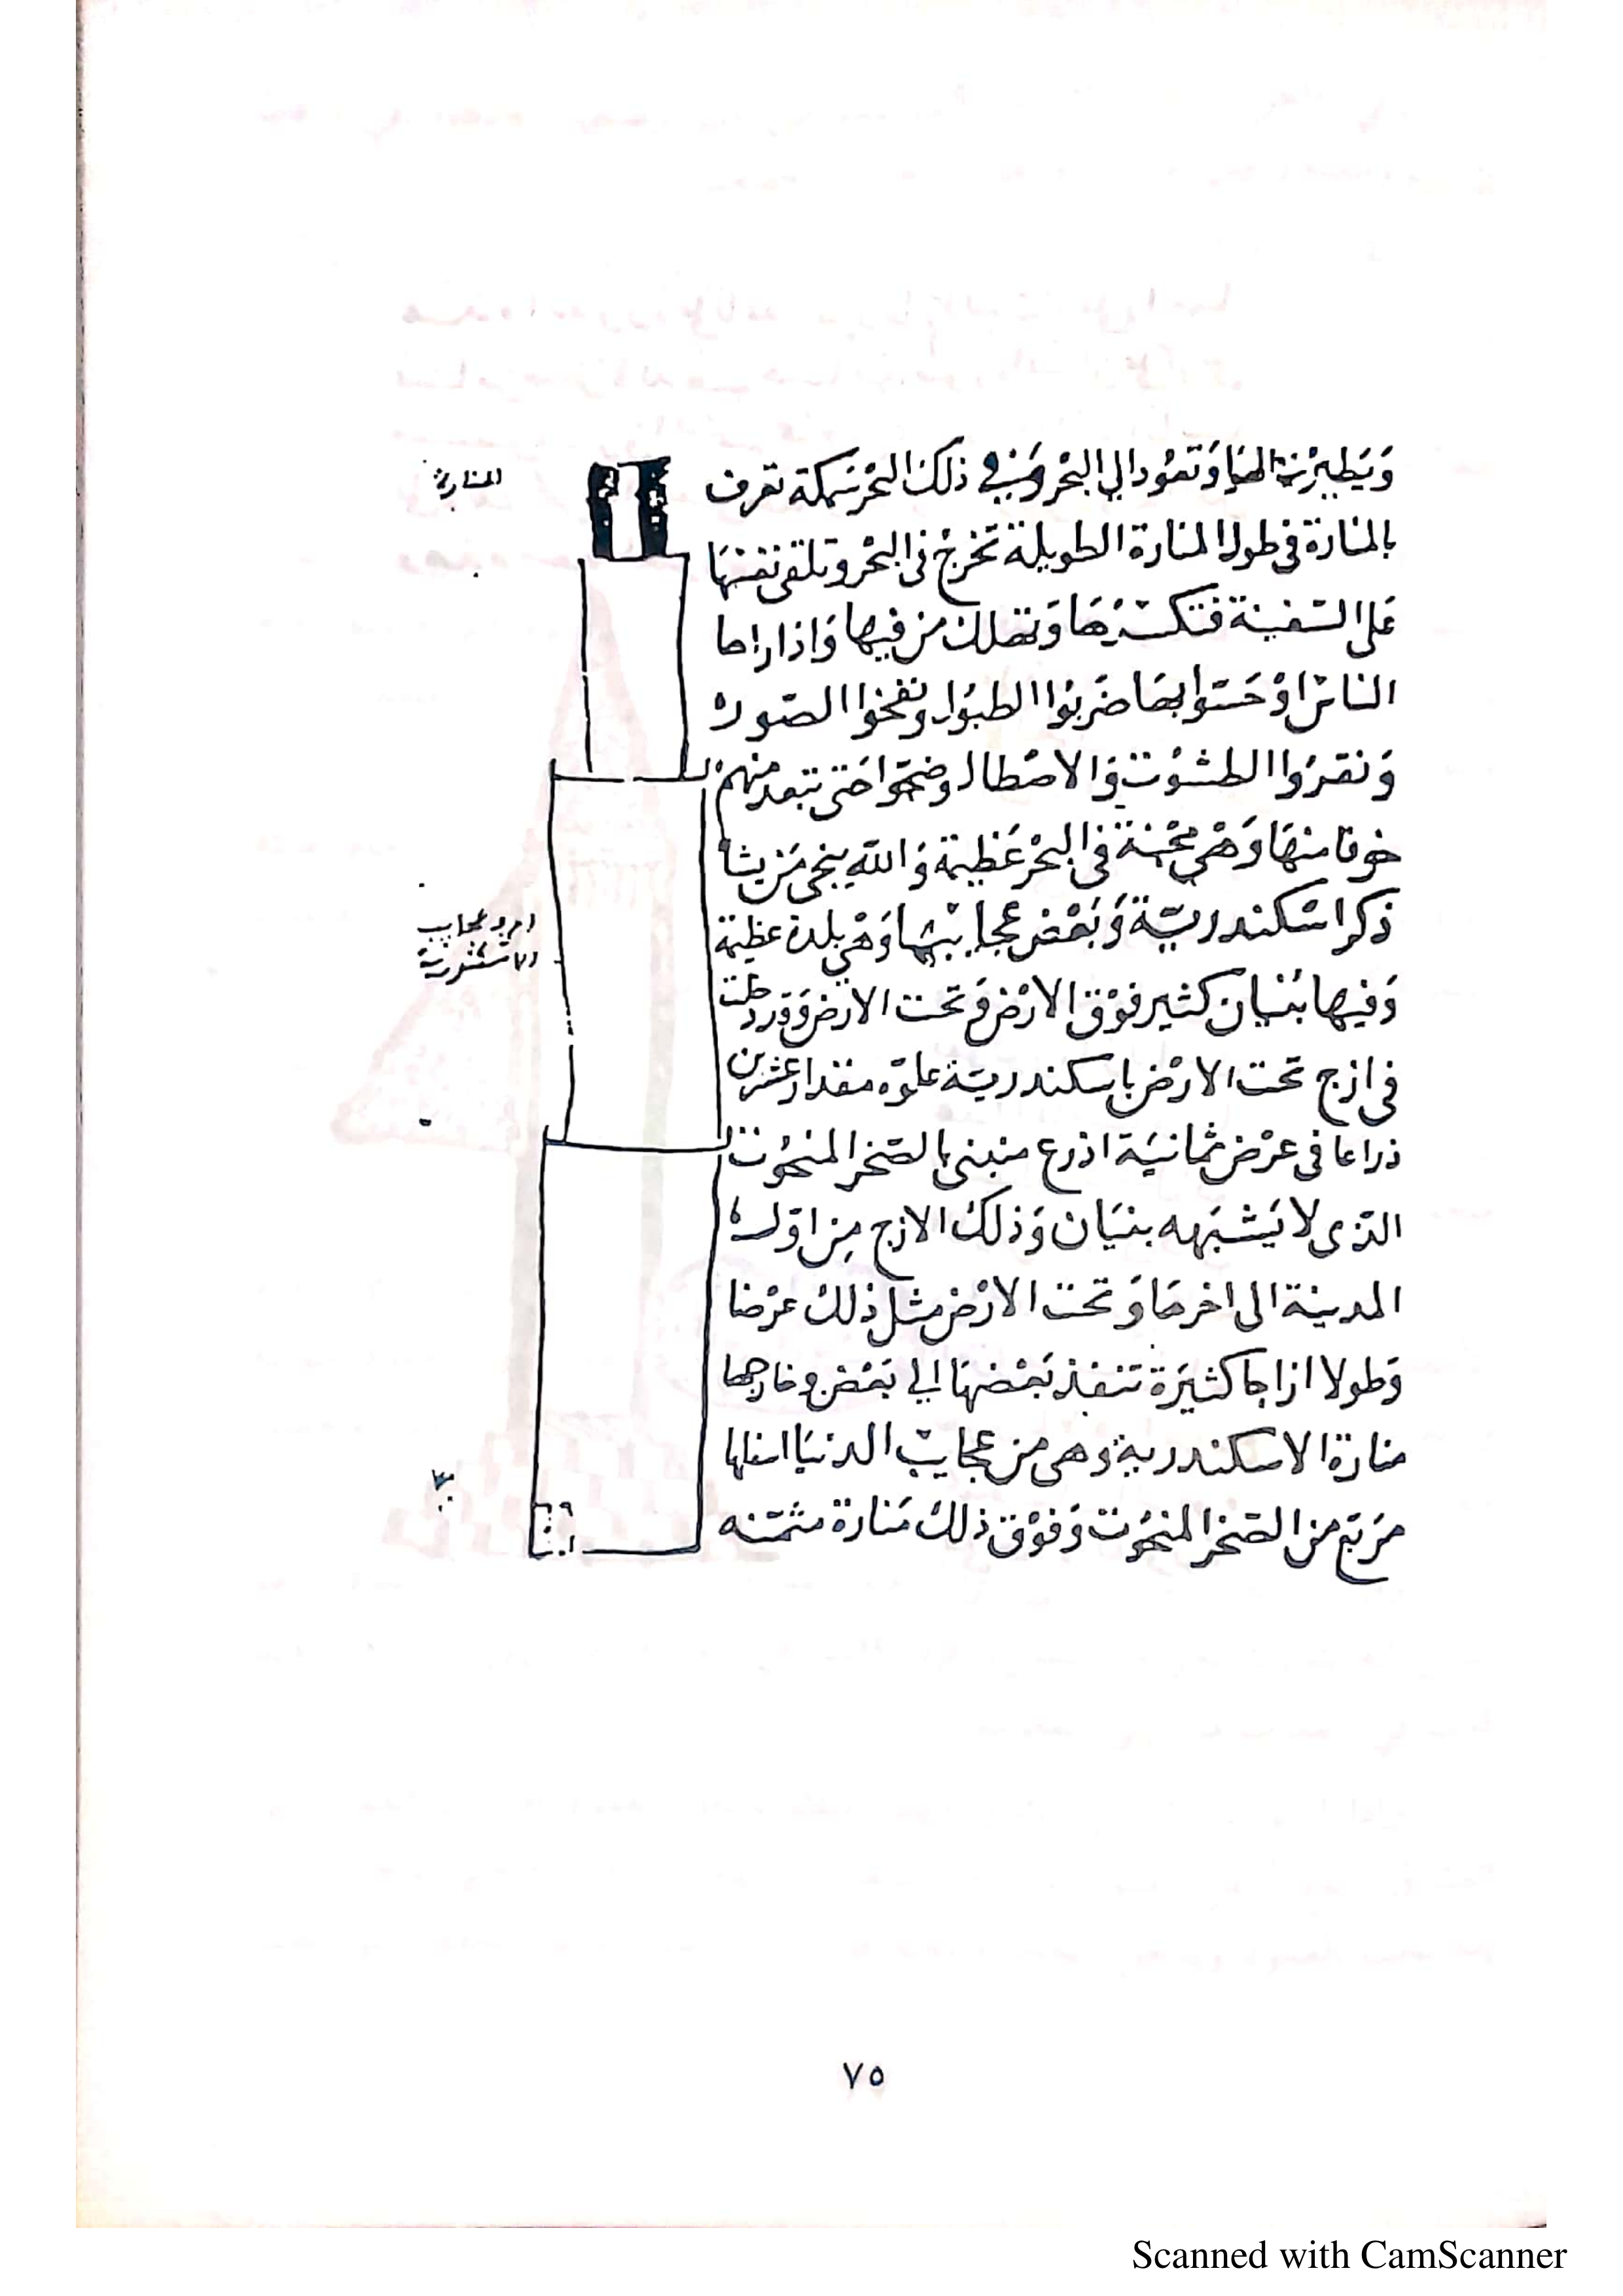 وَيَطِيرْنَ الهَوَا وَتعُود الي البَحْر وَفي ذلكَ البَحْر سَمكة تعرف
بالمنَارَة في طول المنارة الطويلة تَخرجْ في البَحْر وتلقى نفسَهَا
عَلى السّفينة فتكسّرُهَا وَتهلك من فيها وَاذا راها
الناسْ اوْ حَسّوا بهَا ضَربُوا الطبُول ونفخوا الصّور
وَنقرُوا الطشوُت وَالاصْطال وضجّوا حَتى تبعد منهم
خوفا منهَا وَهْي محْنة في البحْر عَظيمة وَاللّه ينجى مَن يشا
ذكر اسْكندريّة وَبَعْض عجايبهَا وَهْي بلدة عظيمة
وَفيها بُنْيان كثير فوْق الارْض وَتحت الارْض وَقد دخلت
في ازج تحت الارْض باسكندريّة علوّه مقدار عشرين
ذراعا في عرْض ثمانيَة اذرع مبنى بالصّخر المنحُوْت
الذّى لا يَشبَهه بنيَان وَذلكَ الازج مِن اوّله
المدينة الى اخرهَا وَتحت الارْض مثل ذلكَ عرْضا
وَطولا ازاجا كثيَرة تنفذ بَعْضهَا الي بَعْض وخارجها
منارَة الاسكندرية وهى من عجايب الدنيَا اسفلها
مَربّع من الصّخر المنحُوْت وَفوْق ذلكَ مَنارة مثمّنه
المنارة
عجايب
الاسكندرية
٧٥
Scanned with CamScanner